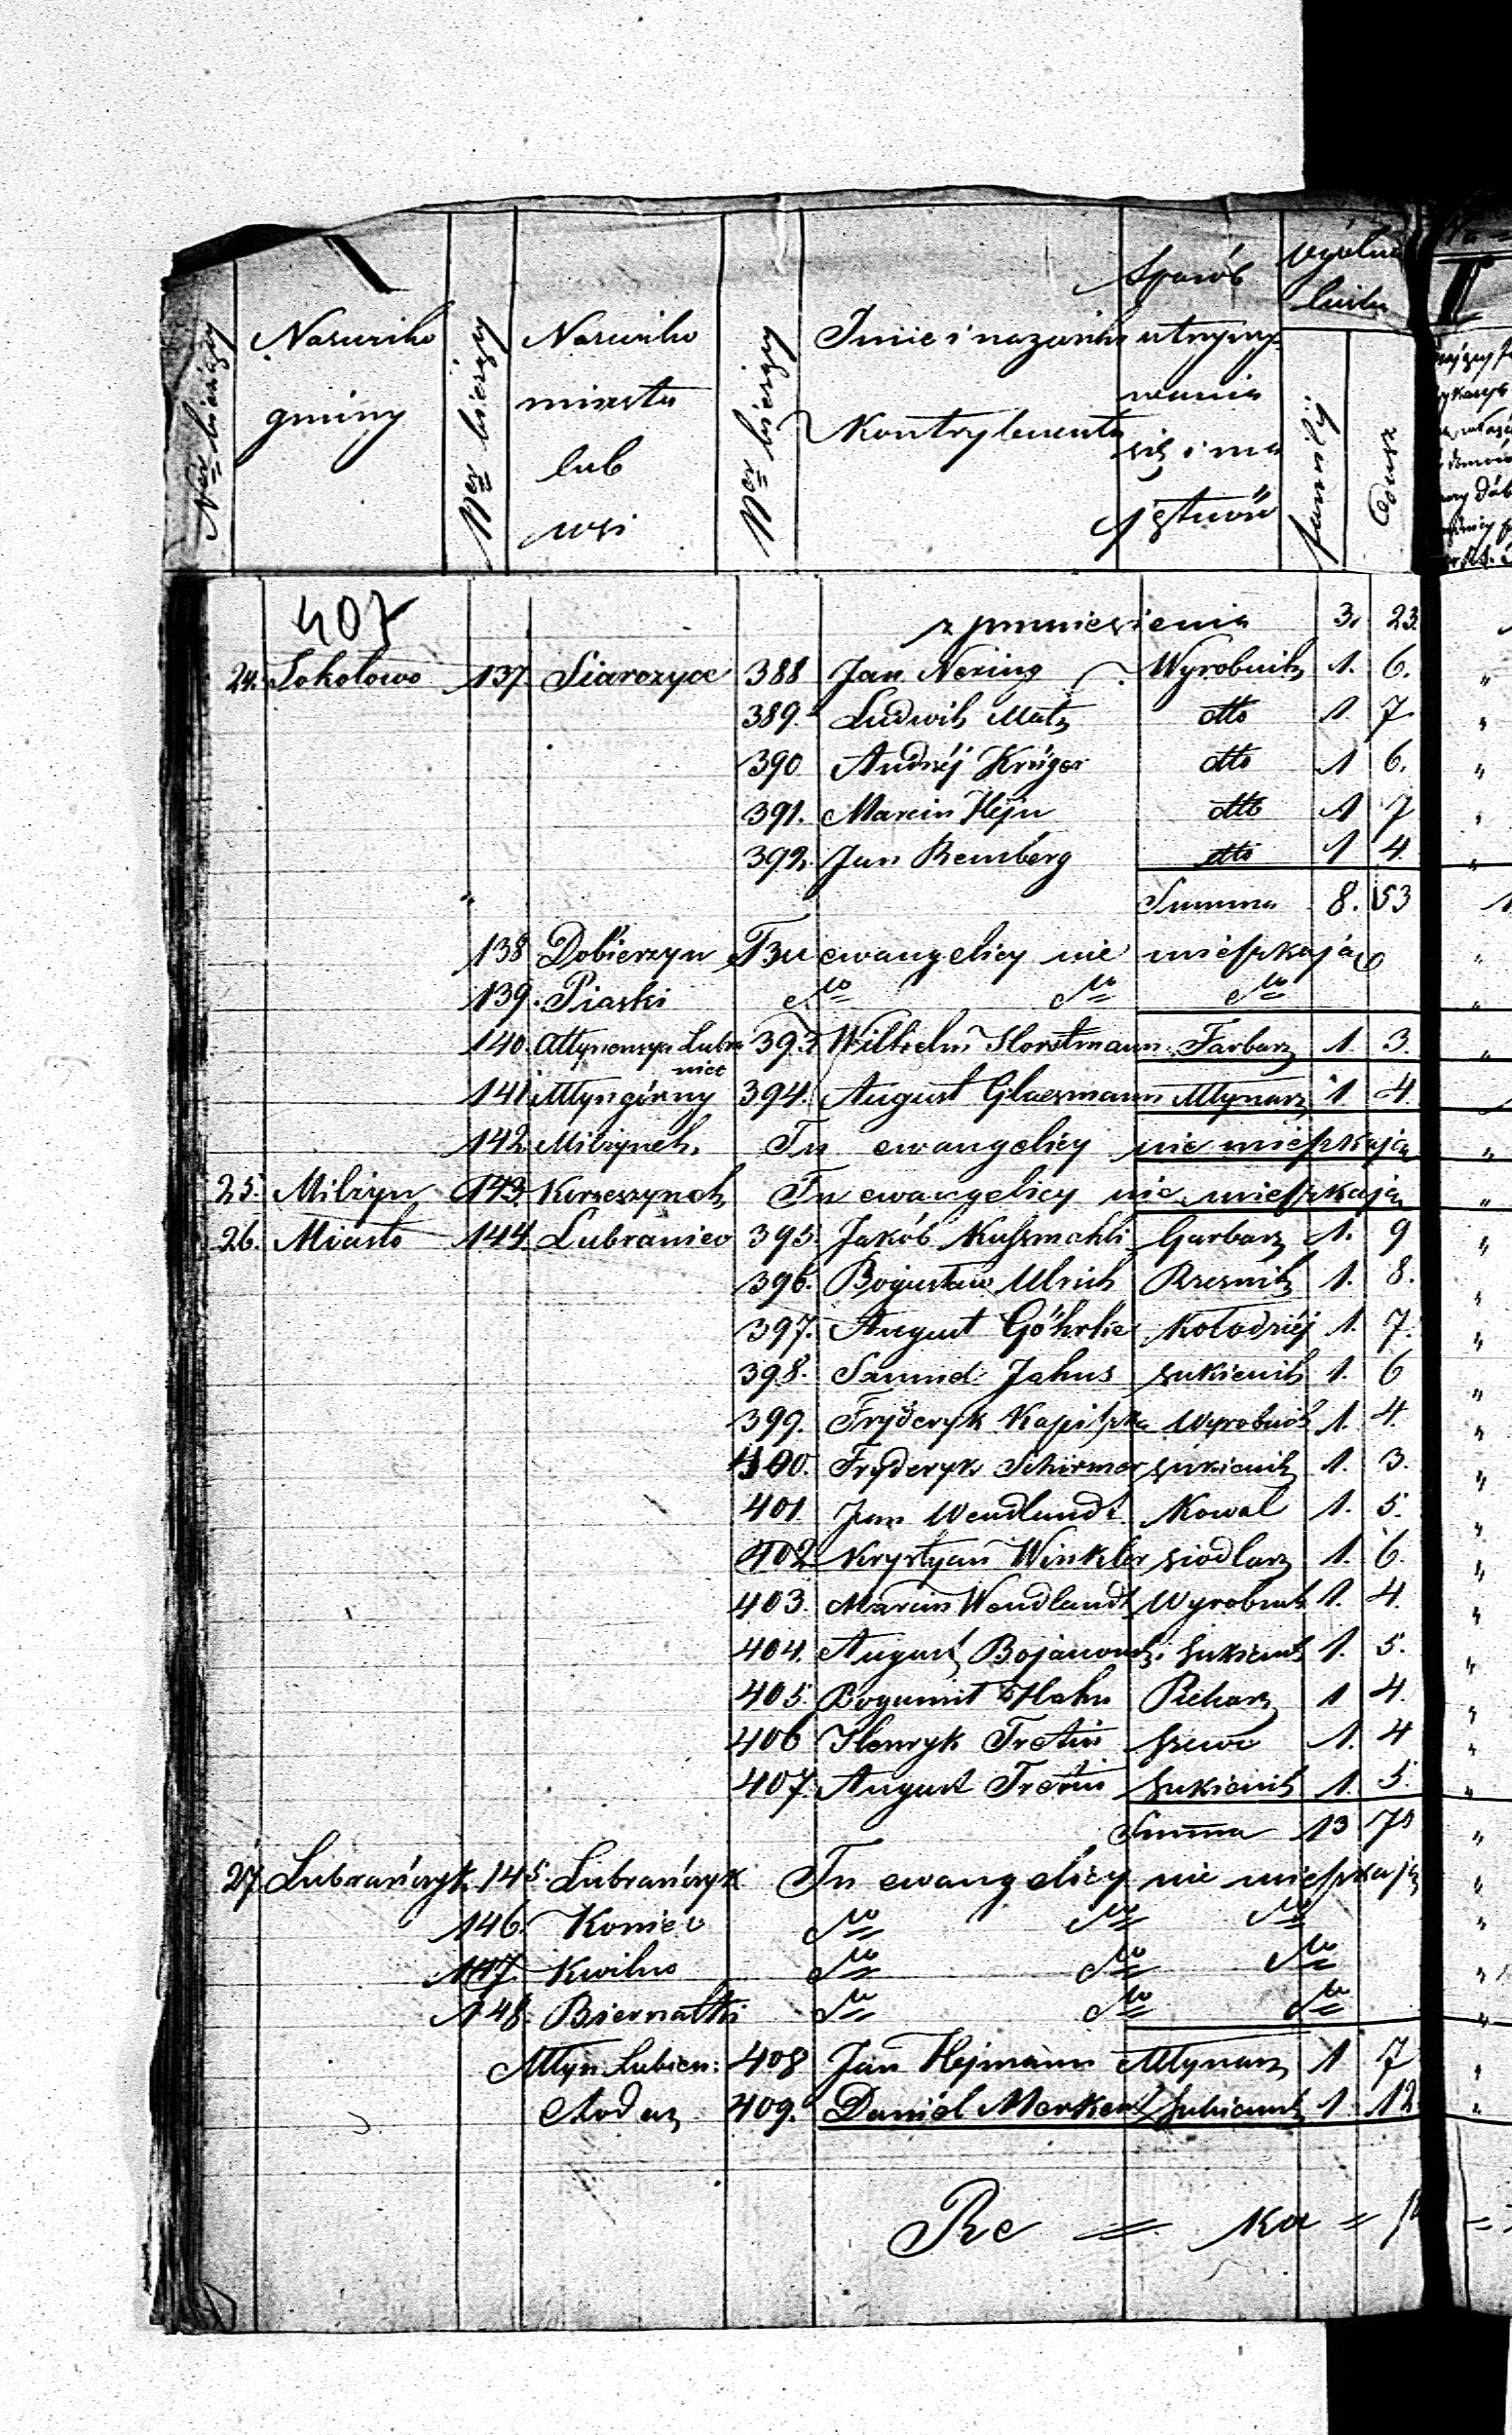 Ner bieżący
Nazwisko gminy
Ner bieżący
Nazwisko miasta lub wsi
Ner bieżący
Imie i nazwisko Kontrybuenta
Sposób utrzymywania się i ma jątwoś
Ogólna liczba
familii
Dusz
407 z przeniesienia 3. 23.
24. Sokolowo 137. Siarczyce 388 Jan Nering Wyrobnik 1. 6.
389. Ludwik Matz dtto 1. 7
390. Andrzéj Krüger dtto 1 6.
391. Marcin Hejn dtto 1 7
392. Jan Remberg dtto 1 4.
Summa 8. 53
138 Dobierzyn Tu ewangelicy nie mieszkają
139. Piaski
140. Lubra niec 393 Wilhelm Horstmann Farbarz 1. 3.
141 Młyn górny 394. August Glaesmann Młynarz 1 4.
142. Milżynek. Tu ewangelicy nie mieszkają
25. Milżyn 143. Korzeszynek Tu ewangelicy nie mieszkają
26. Miasto 144. Lubraniec 395. Jakób Garbarz 1. 9
396. Bogusław Ulrich Rzeźnik 1. 8.
397. August Göhrke Kołodziéj 1. 7.
398. Samuel Jahns sukienik 1. 6
399. Fryderyk Wyrobnik 1. 4.
400. Fryderyk Schirmer sukienik 1. 3.
401. Jan Wendlandt Kowal 1. 5.
402 Krystyan Winkler siodlarz 1. 6.
403. Marcin Wendlandt Wyrobnik 1. 4.
404. August Sukienik 1. 5.
405. Bogumił Hahn Piekarz 1 4.
406 Henryk Tretin Szewc 1. 4
407. August Tretin Sukienik 1. 5.
Summa 13 70
27. Lubrańczyk 145. Lubrańczyk Tu ewangelicy nie mieszkają
146. Koniec
147. Kwilno
148. Biernatki
Młyn Lubien: 408 Jan Hejmann Młynarz 1 7
409. Daniel Sukienik 1 12